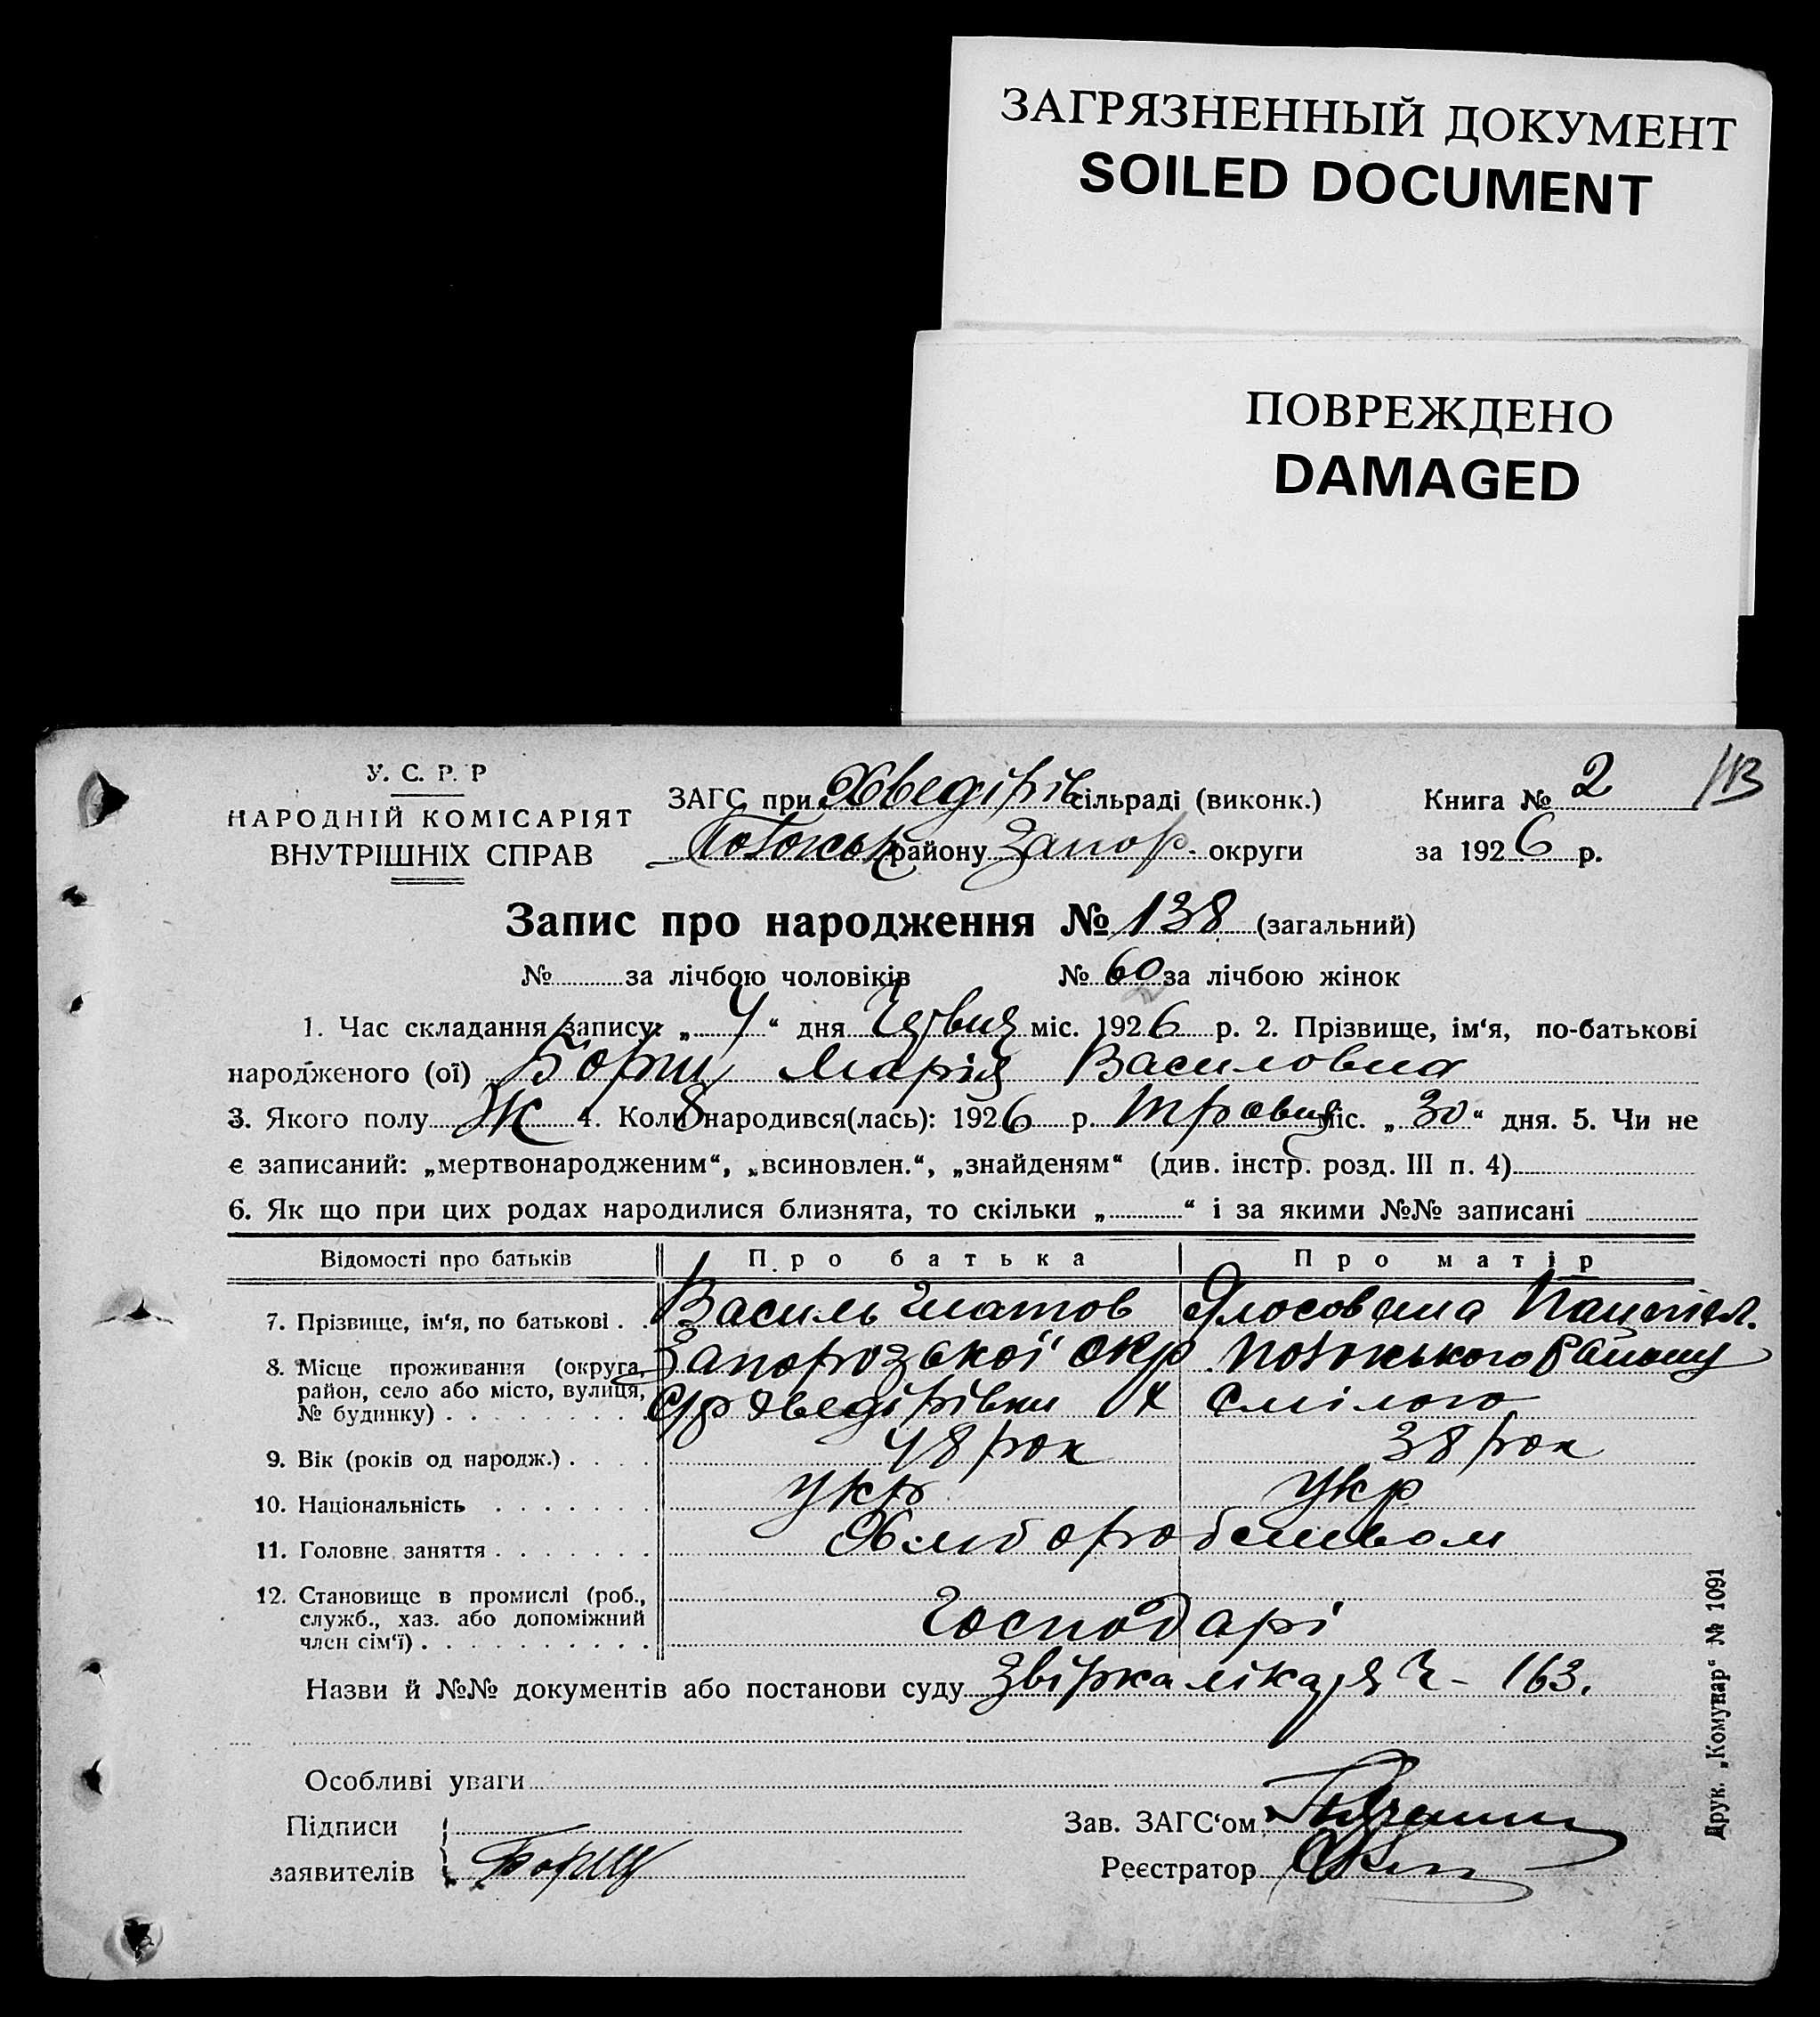 ЗАГРЯЗНЕННЫЙ ДОКУМЕНТ
SOILED DOCUMENT
ПОВРЕЖДЕНО
DAMAGED
У. С. Р. Р
НАРОДНІЙ КОМІСАРІЯТ
ВНУТРІШНІХ СПРАВ
ЗАГС при Хведірів сільраді (виконк.)
району Запор. округи
Книга № 2
за 1926 р.
Запис про народження № 138 (загальний)
№ за лічбою чоловіків № 60 за лічбою жінок
1. Час складання запису: „ 4 “ дня Червня міс. 1926 р. 2. Прізвище, ім‘я, по-батькові
народженого (ої) Борщ Марія Василовна
3. Якого полу Ж 4. Коли народився(лась): 1926 р. Травня міс. „ 30 “ дня. 5. Чи не
є записаний: „мертвонародженим“, „всиновлен.“, „знайденям“ (див. інстр. розд. III п. 4)
6. Як що при цих родах народилися близнята, то скільки „ “ і за якими №№ записані
Відомості про батьків Про батька Про матір
7. Прізвище, ім‘я, по батькові . . Василь
8. Місце проживання (округа, район, село або місто, вулиця, № будинку) Запорозької окр Району
9. Вік (років од народж.) . . . . 48 рок 38 рок
10. Національність . . . . . . . укр Укр
11. Головне заняття . . . . . . . Хліборобством
12. Становище в промислі (роб., служб., хаз. або допоміжний член сім‘ї) . . . . . . . . . . Господарі
Назви й №№ документів або постанови суду Звірка лікаря Ч - 163.
Особливі уваги
Підписи
заявителів Борщ
Зав. ЗАГС‘ом
Реєстратор
Друк. „Комунар“ № 1091